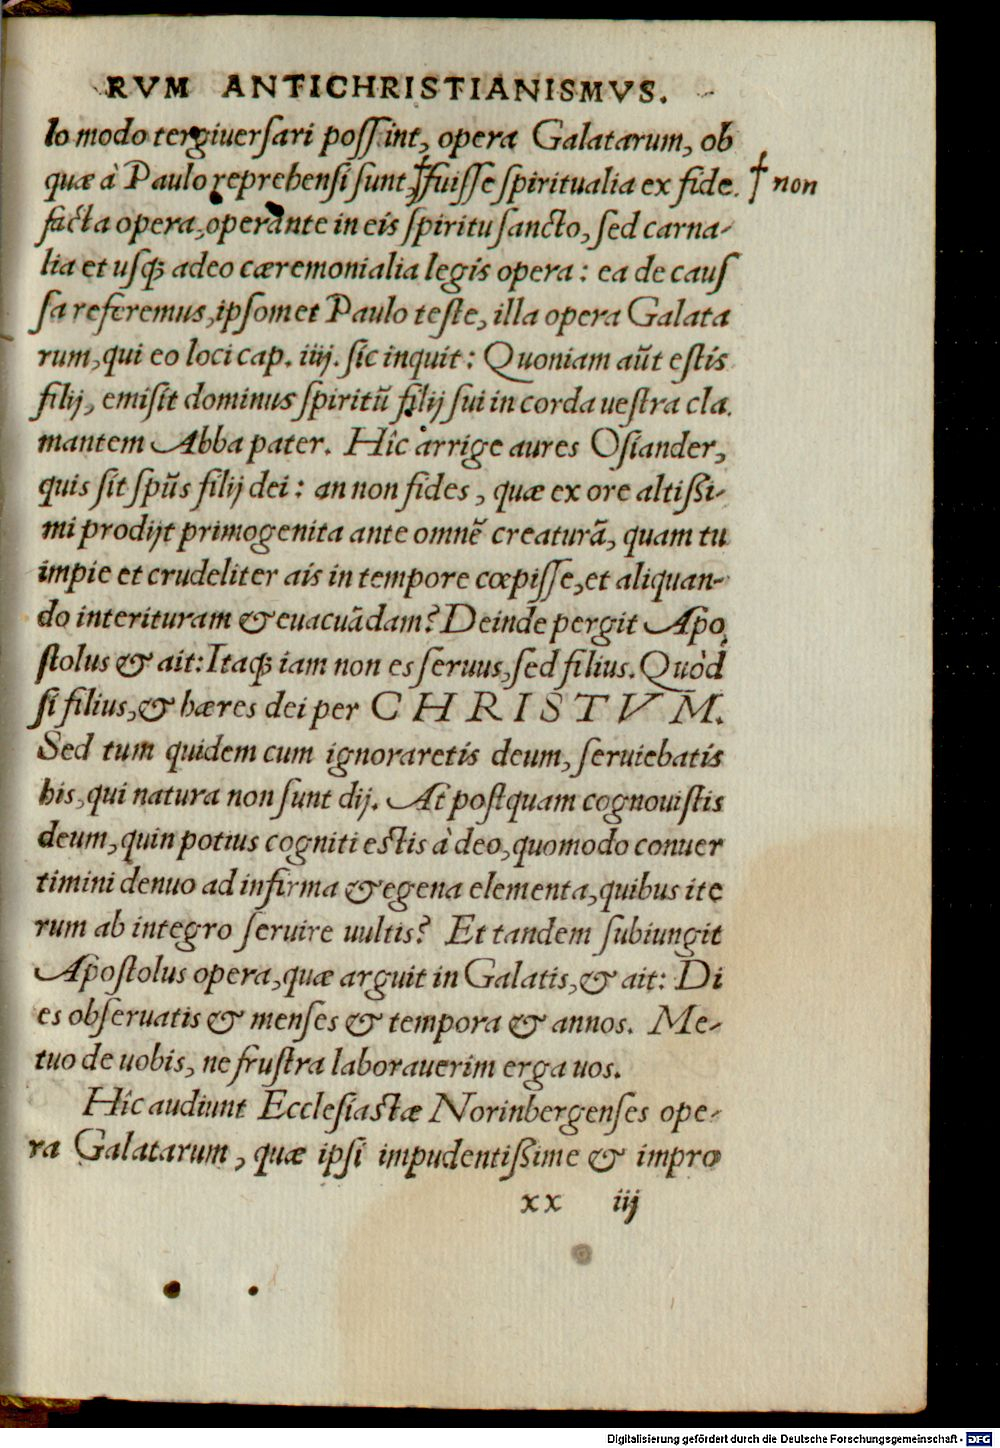 RVM ANTICHRISTIANISMVS.
lo modo tergiuersari possint, opera Galatarum, ob
quæ à Paulo reprehensi sunt,† fuisse spiritualia ex fide. † non
facta opera, operante in eis spiritu sancto, sed carna-
lia et usq; adeo cæremonialia legis opera: ea de caus
sa referemus, ipsomet Paulo teste, illa opera Galata
rum, qui eo loci cap. iiij. sic inquit: Quoniam aūt estis
filij, emisit dominus spiritū filij sui in corda uestra cla.
mantem Abba pater. Hîc arrige aures Osiander,
quis sit spūs filij dei: an non fides, quæ ex ore altissi-
mi prodijt primogenita ante omnē creaturā, quam tu
impie et crudeliter ais in tempore cœpisse, et aliquan-
do interituram & euacuādam? Deinde pergit Apo
stolus & ait: Itaq; iam non es seruus, sed filius. Quòd
si filius, & hæres dei per CHRISTVM.
Sed tum quidem cum ignoraretis deum, seruiebatis
his, qui natura non sunt dij. At postquam cognouistis
deum, quin potius cogniti estis à deo, quomodo conuer
timini denuo ad infirma & egena elementa, quibus ite
rum ab integro seruire uultis? Et tandem subiungit
Apostolus opera, quæ arguit in Galatis, & ait: Di
es obseruatis & menses & tempora & annos. Me-
tuo de uobis, ne frustra laborauerim erga uos.
Hîc audiunt Ecclesiastæ Norinbergenses ope-
ra Galatarum, quæ ipsi impudentissime & impro
xx iij
Digitalisierung gefördert durch die Deutsche Forschungsgemeinschaft - DFG